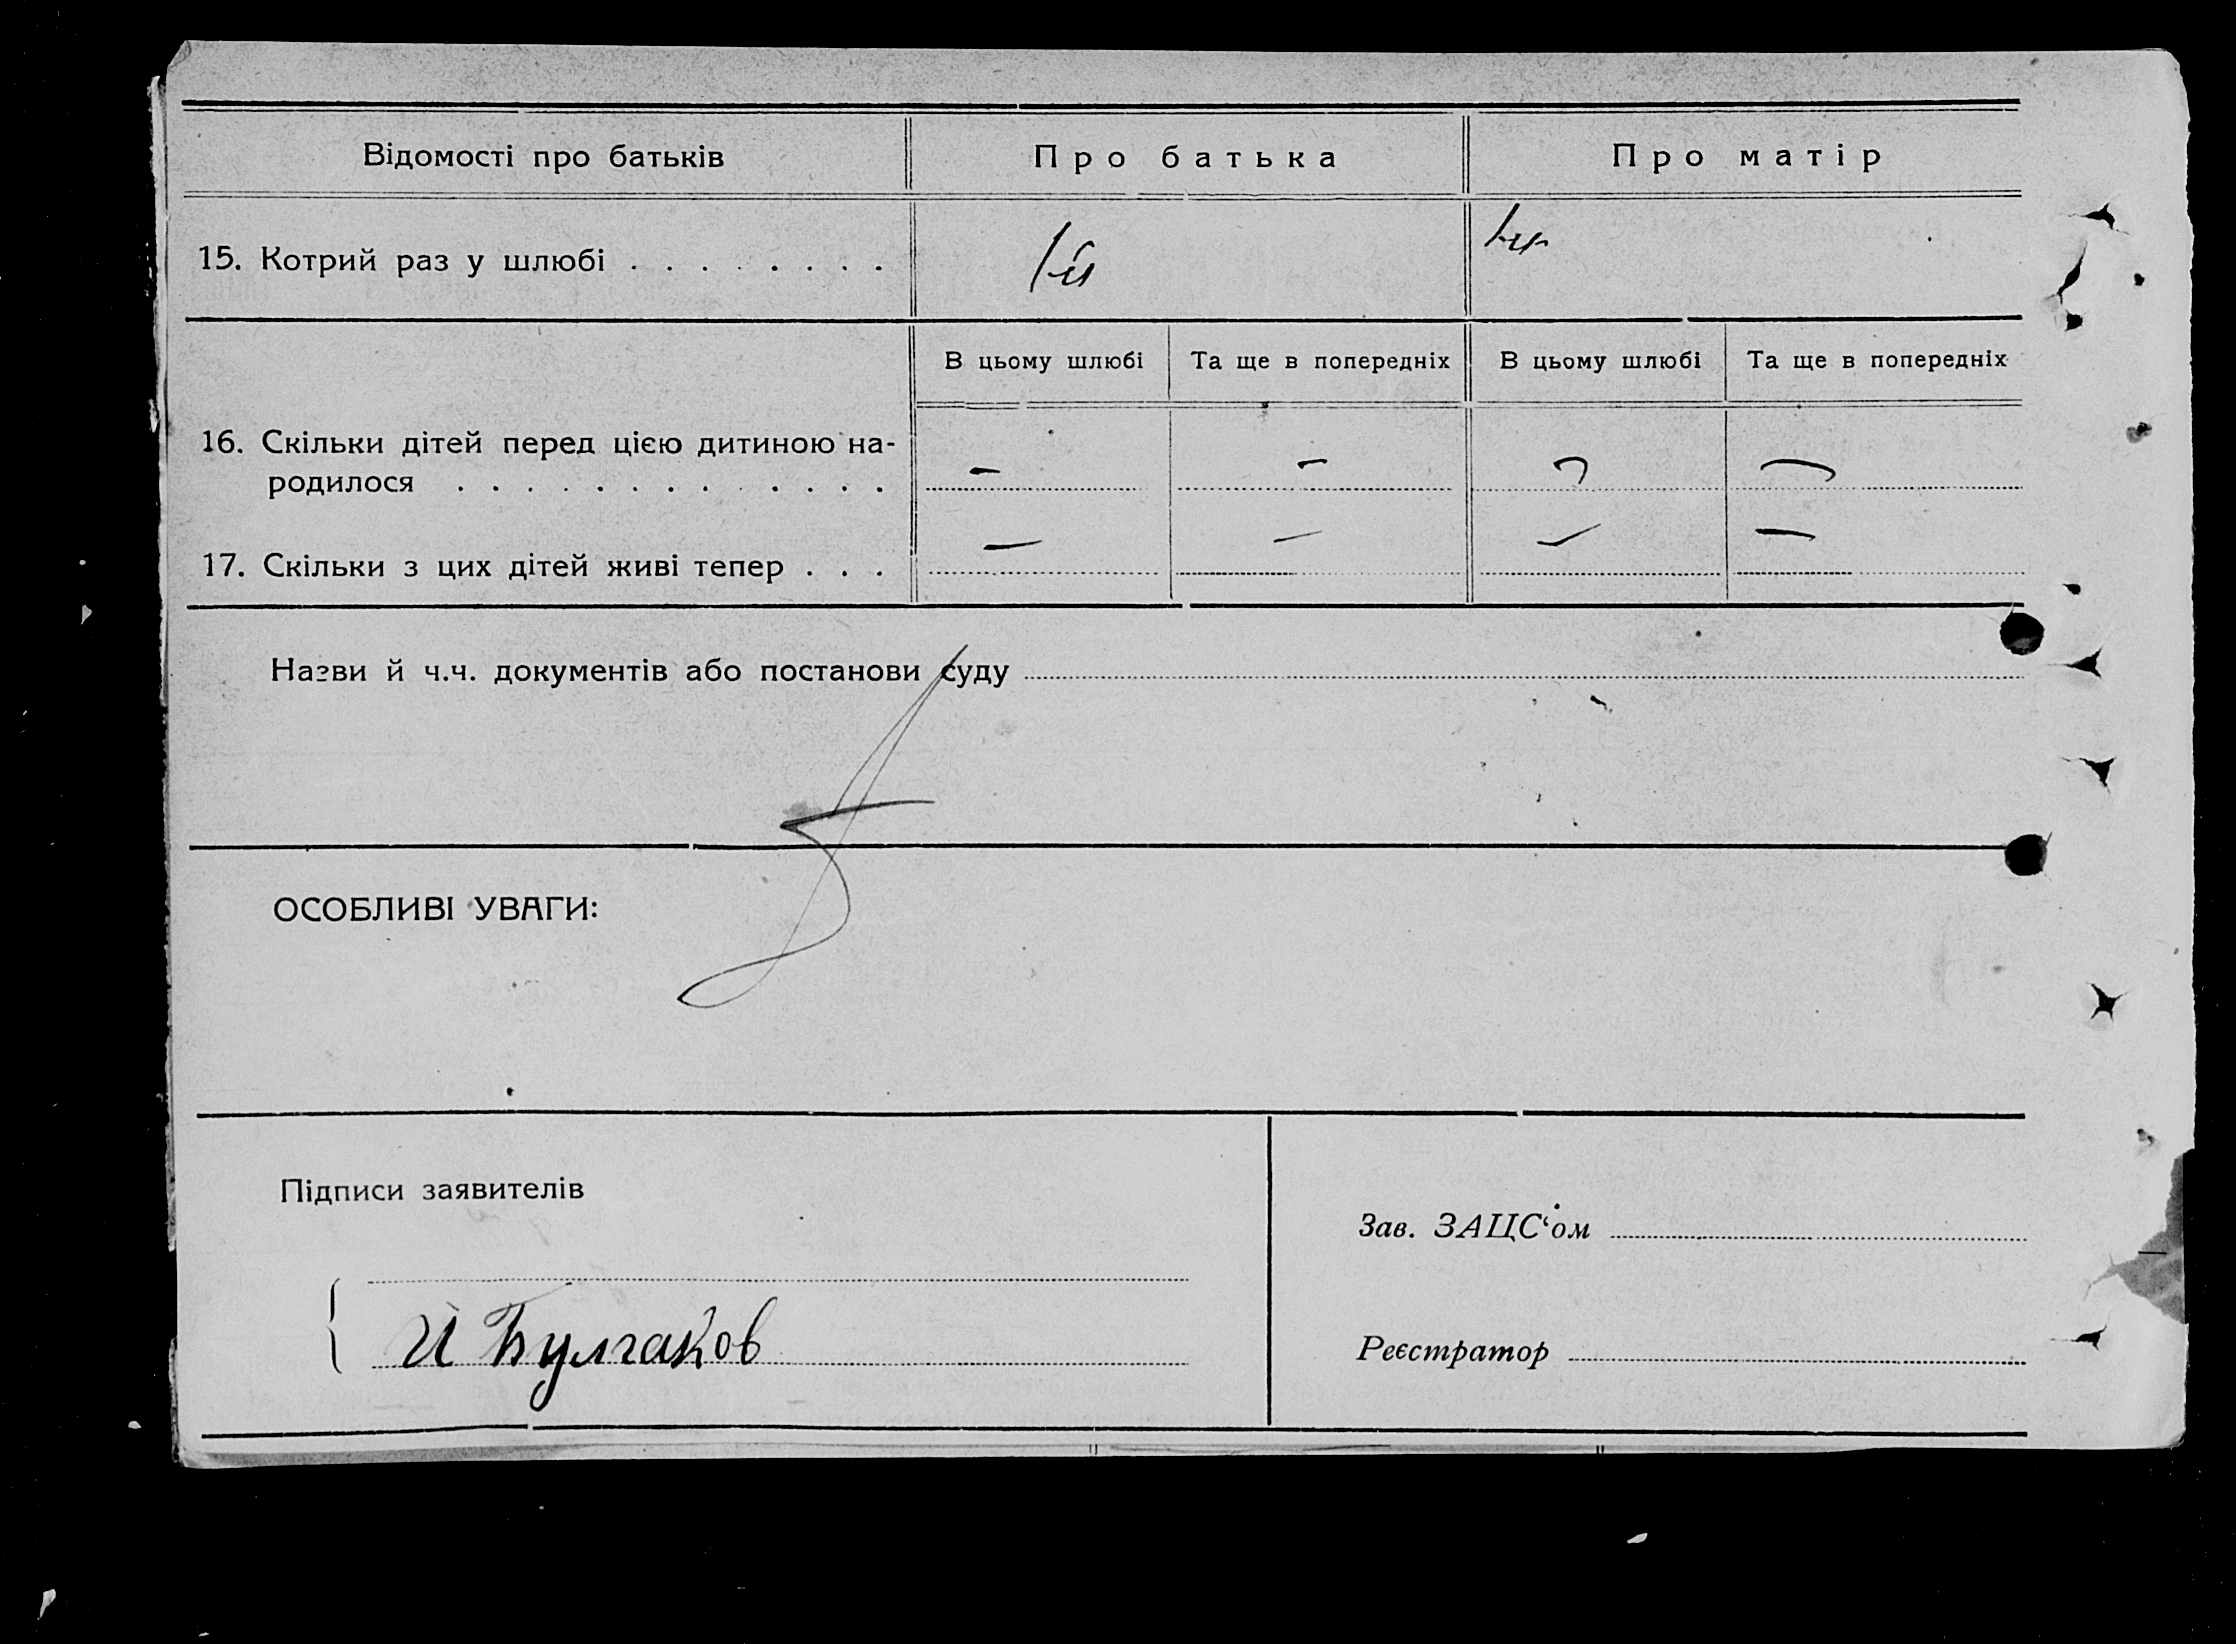 Відомості про батьків Про батька Про матір
15. Котрий раз у шлюбі . . . . . . . . 1й
В цьому шлюбі Та ще в попередніх В цьому шлюбі Та ще в попередніх
16. Скільки дітей перед цією дитиною на-
родилося . . . . . . . . . . . . . – – – –
17. Скільки з цих дітей живі тепер . . . – – – –
Назви й ч.ч. документів або постанови суду
ОСОБЛИВІ УВАГИ:
Підписи заявителів
Зав. ЗАЦС‘ом
И Булгаков
Реєстратор